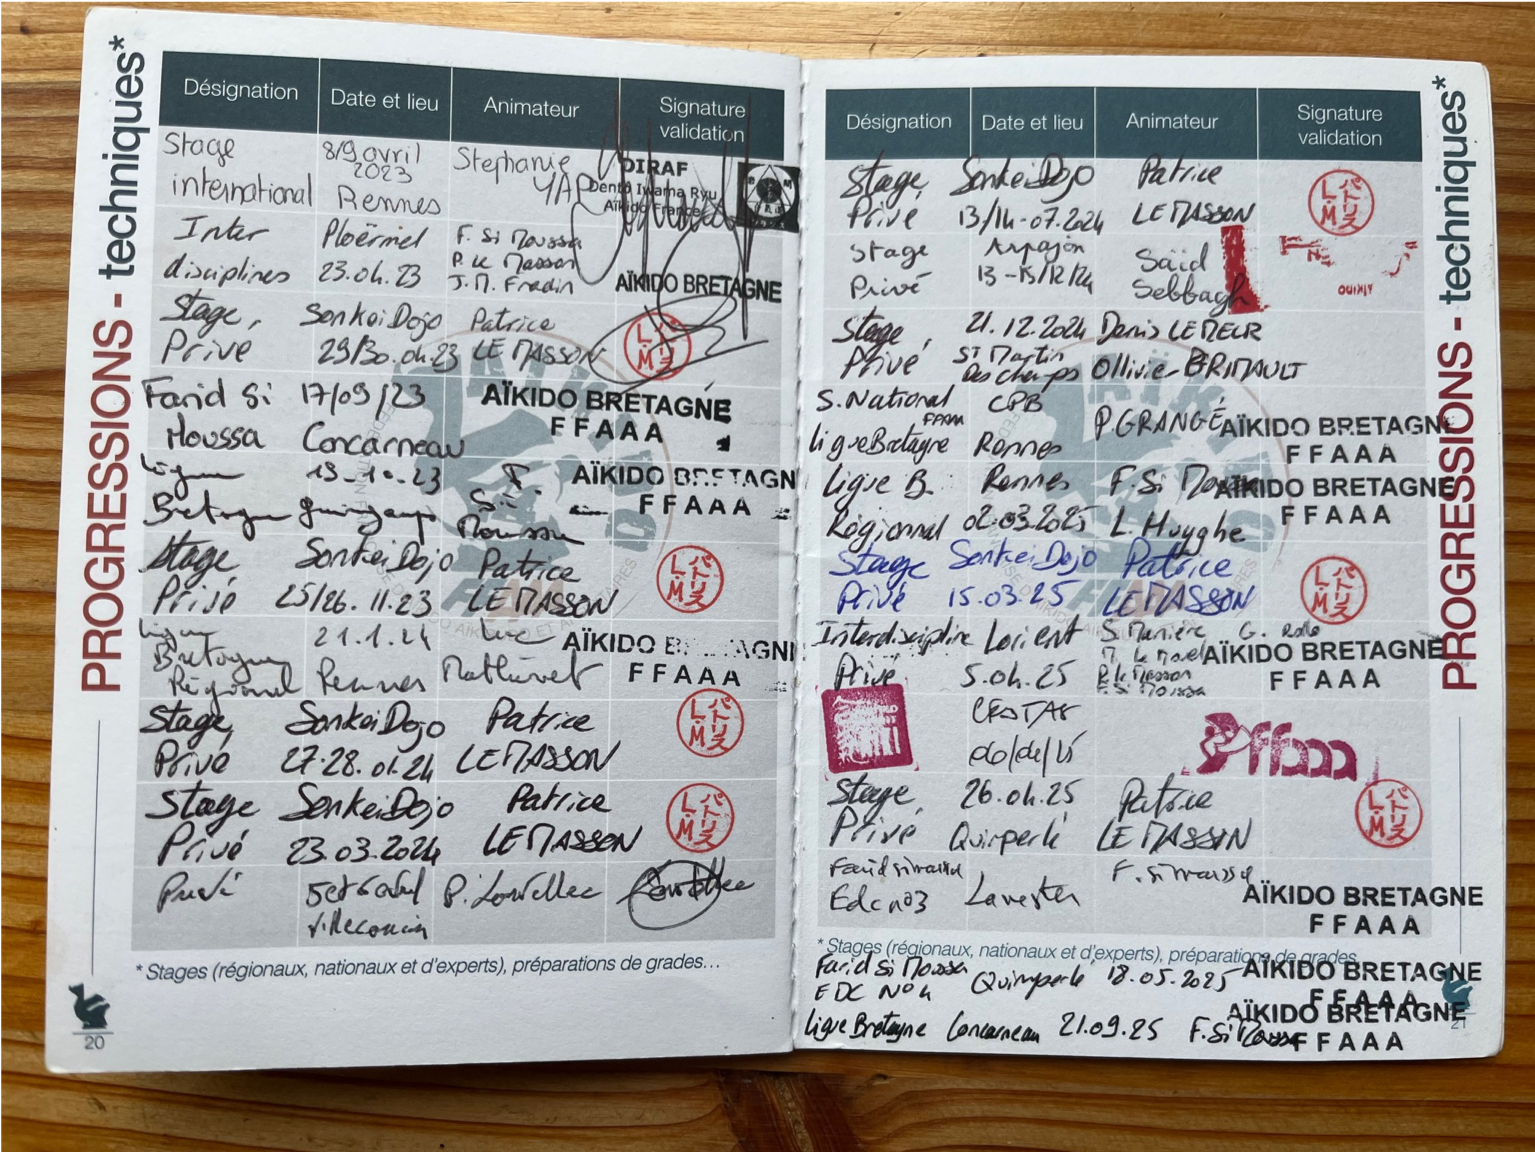 PROGRESSIONS - techniques*
Désignation Date et lieu Animateur Signature validation
Stage 8/9 avril 2023 Stephanie
international Rennes YAP
DIRAF
Dento Iwama Ryu
Aïkido France
Inter Ploërmel F. Si Moussa
P. Le Masson
disciplines 23.04.23 J.M. Fradin
AÏKIDO BRETAGNE
Stage, SonkeiDojo Patrice
Privé 29/30.04.23 LE MASSON
パトリス L.M
Farid Si 17/09/23
Moussa Concarneau
AÏKIDO BRETAGNE
FFAAA
Ligue 19-10-23 F.
Bretagne Guingamp Si
Moussa
AÏKIDO BRETAGN
FFAAA
Stage SonkeiDojo Patrice
Privé 25/26.11.23 LE MASSON
パトリス L.M
Ligue 21.1.24 Luc
Bretagne
Régional Rennes Mathevet
AÏKIDO BRETAGN
FFAAA
Stage, SonkeiDojo Patrice
Privé 27.28.01.24 LE MASSON
パトリス L.M
Stage SonkeiDojo Patrice
Privé 23.03.2024 LE MASSON
パトリス L.M
Privé P.
* Stages (régionaux, nationaux et d'experts), préparations de grades...
20
Désignation Date et lieu Animateur Signature validation
Stage, SonkeiDojo Patrice
Privé 13/14-07.2024 LE MASSON
パトリス L.M
Stage Arpajon Saïd
Privé 13-15/12/24 Sebbagh
AÏKIDO
Stage, 21.12.2024 Denis LEMEUR
Privé St Martin
Des champs Ollivier BRIMAULT
S. National CPB
FFAAA P GRANGÉ
Ligue Bretagne Rennes
AÏKIDO BRETAGNE
FFAAA
Ligue B. Rennes F. Si Moussa
Régionnal 02.03.2025 L. Huyghe
AÏKIDO BRETAGNE
FFAAA
Stage SonkeiDojo Patrice
Privé 15.03.25 LE MASSON
パトリス L.M
Interdiscipline Lorient S. G. Rollo
Privé 5.04.25 P. Le Masson
F. Si Moussa
AÏKIDO BRETAGNE
FFAAA
CESTAS
ffaaa
Stage, 26.04.25 Patrice
Privé Quimperlé LE MASSON
パトリス L.M
Farid si moussa F. Si moussa
Edc n°3 Lanester
AÏKIDO BRETAGNE
FFAAA
* Stages (régionaux, nationaux et d'experts), préparations de grades
Farid Si Moussa Quimperlé 18.05.2025
EDC N°4
AÏKIDO BRETAGNE
FFAAA
Ligue Bretagne Concarneau 21.09.25 F. Si Moussa
AÏKIDO BRETAGNE
FFAAA
21
PROGRESSIONS - techniques*